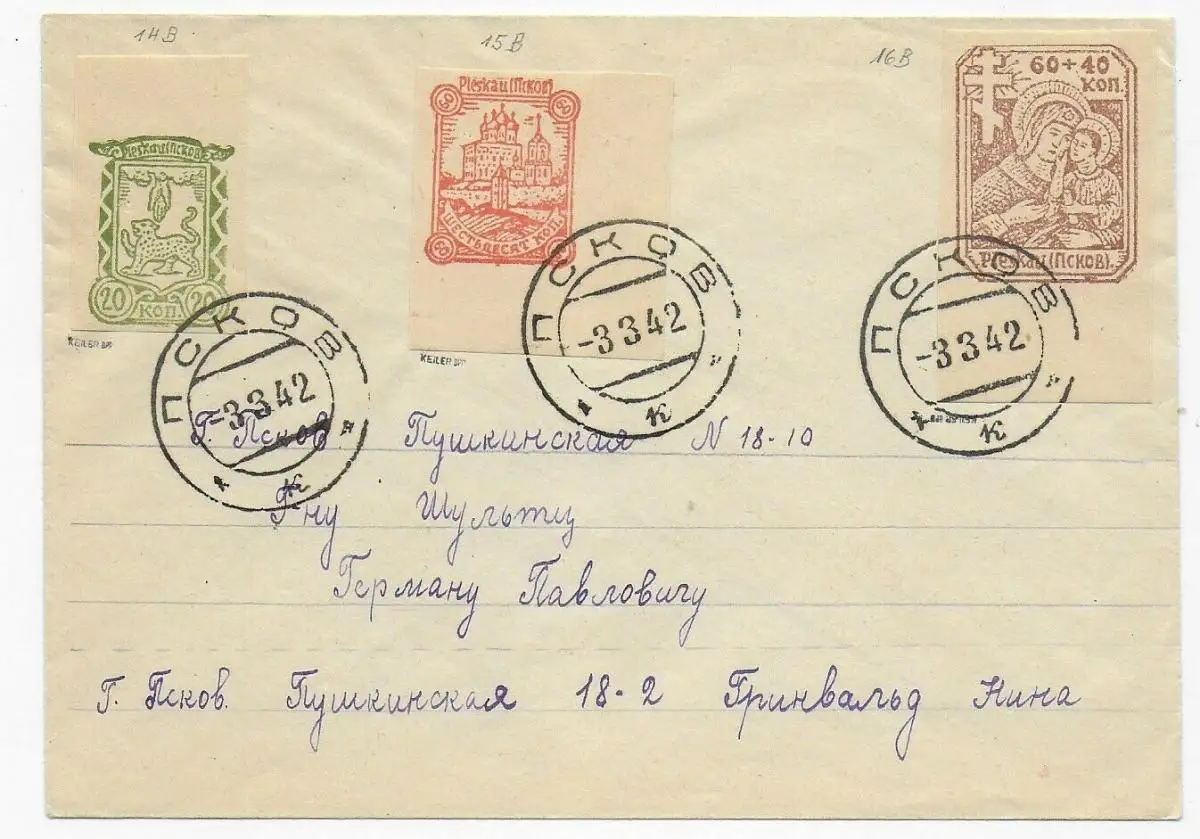 14В
15В
16В
Pleskau (Псков)
20 КОП. 20
KEILER BPP
Pleskau (Псков)
60 60
ШЕСТЬДЕСЯТ КОП.
60 60
KEILER BPP
60 + 40
КОП.
Pleskau (Псков).
ПСКОВ
-3 3 42
К
ПСКОВ
-3 3 42
К
ПСКОВ
-3 3 42
К
Г. Псков. Пушкинская N 18-10
Г-ну Шультц
Герману Павловичу
Г. Псков. Пушкинская 18-2 Гринвальд Нина